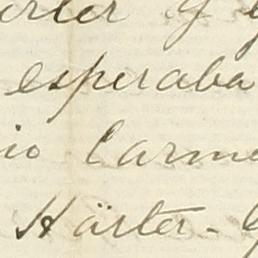 esperaba
io Carme
Härter-